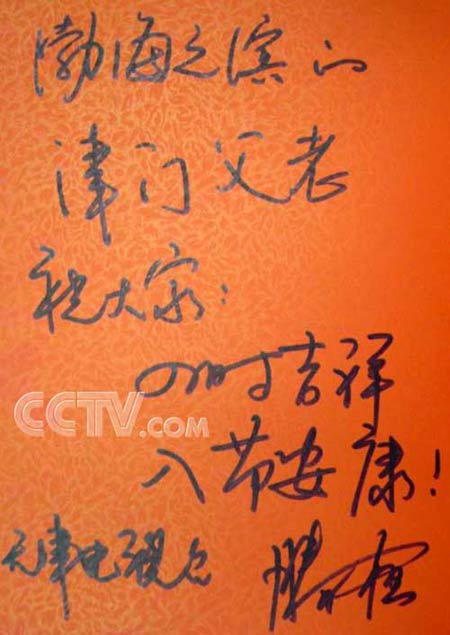 渤海之滨的
津门父老
祝大家：
四时吉祥
CCTV.com
八节安康！
天津电视台